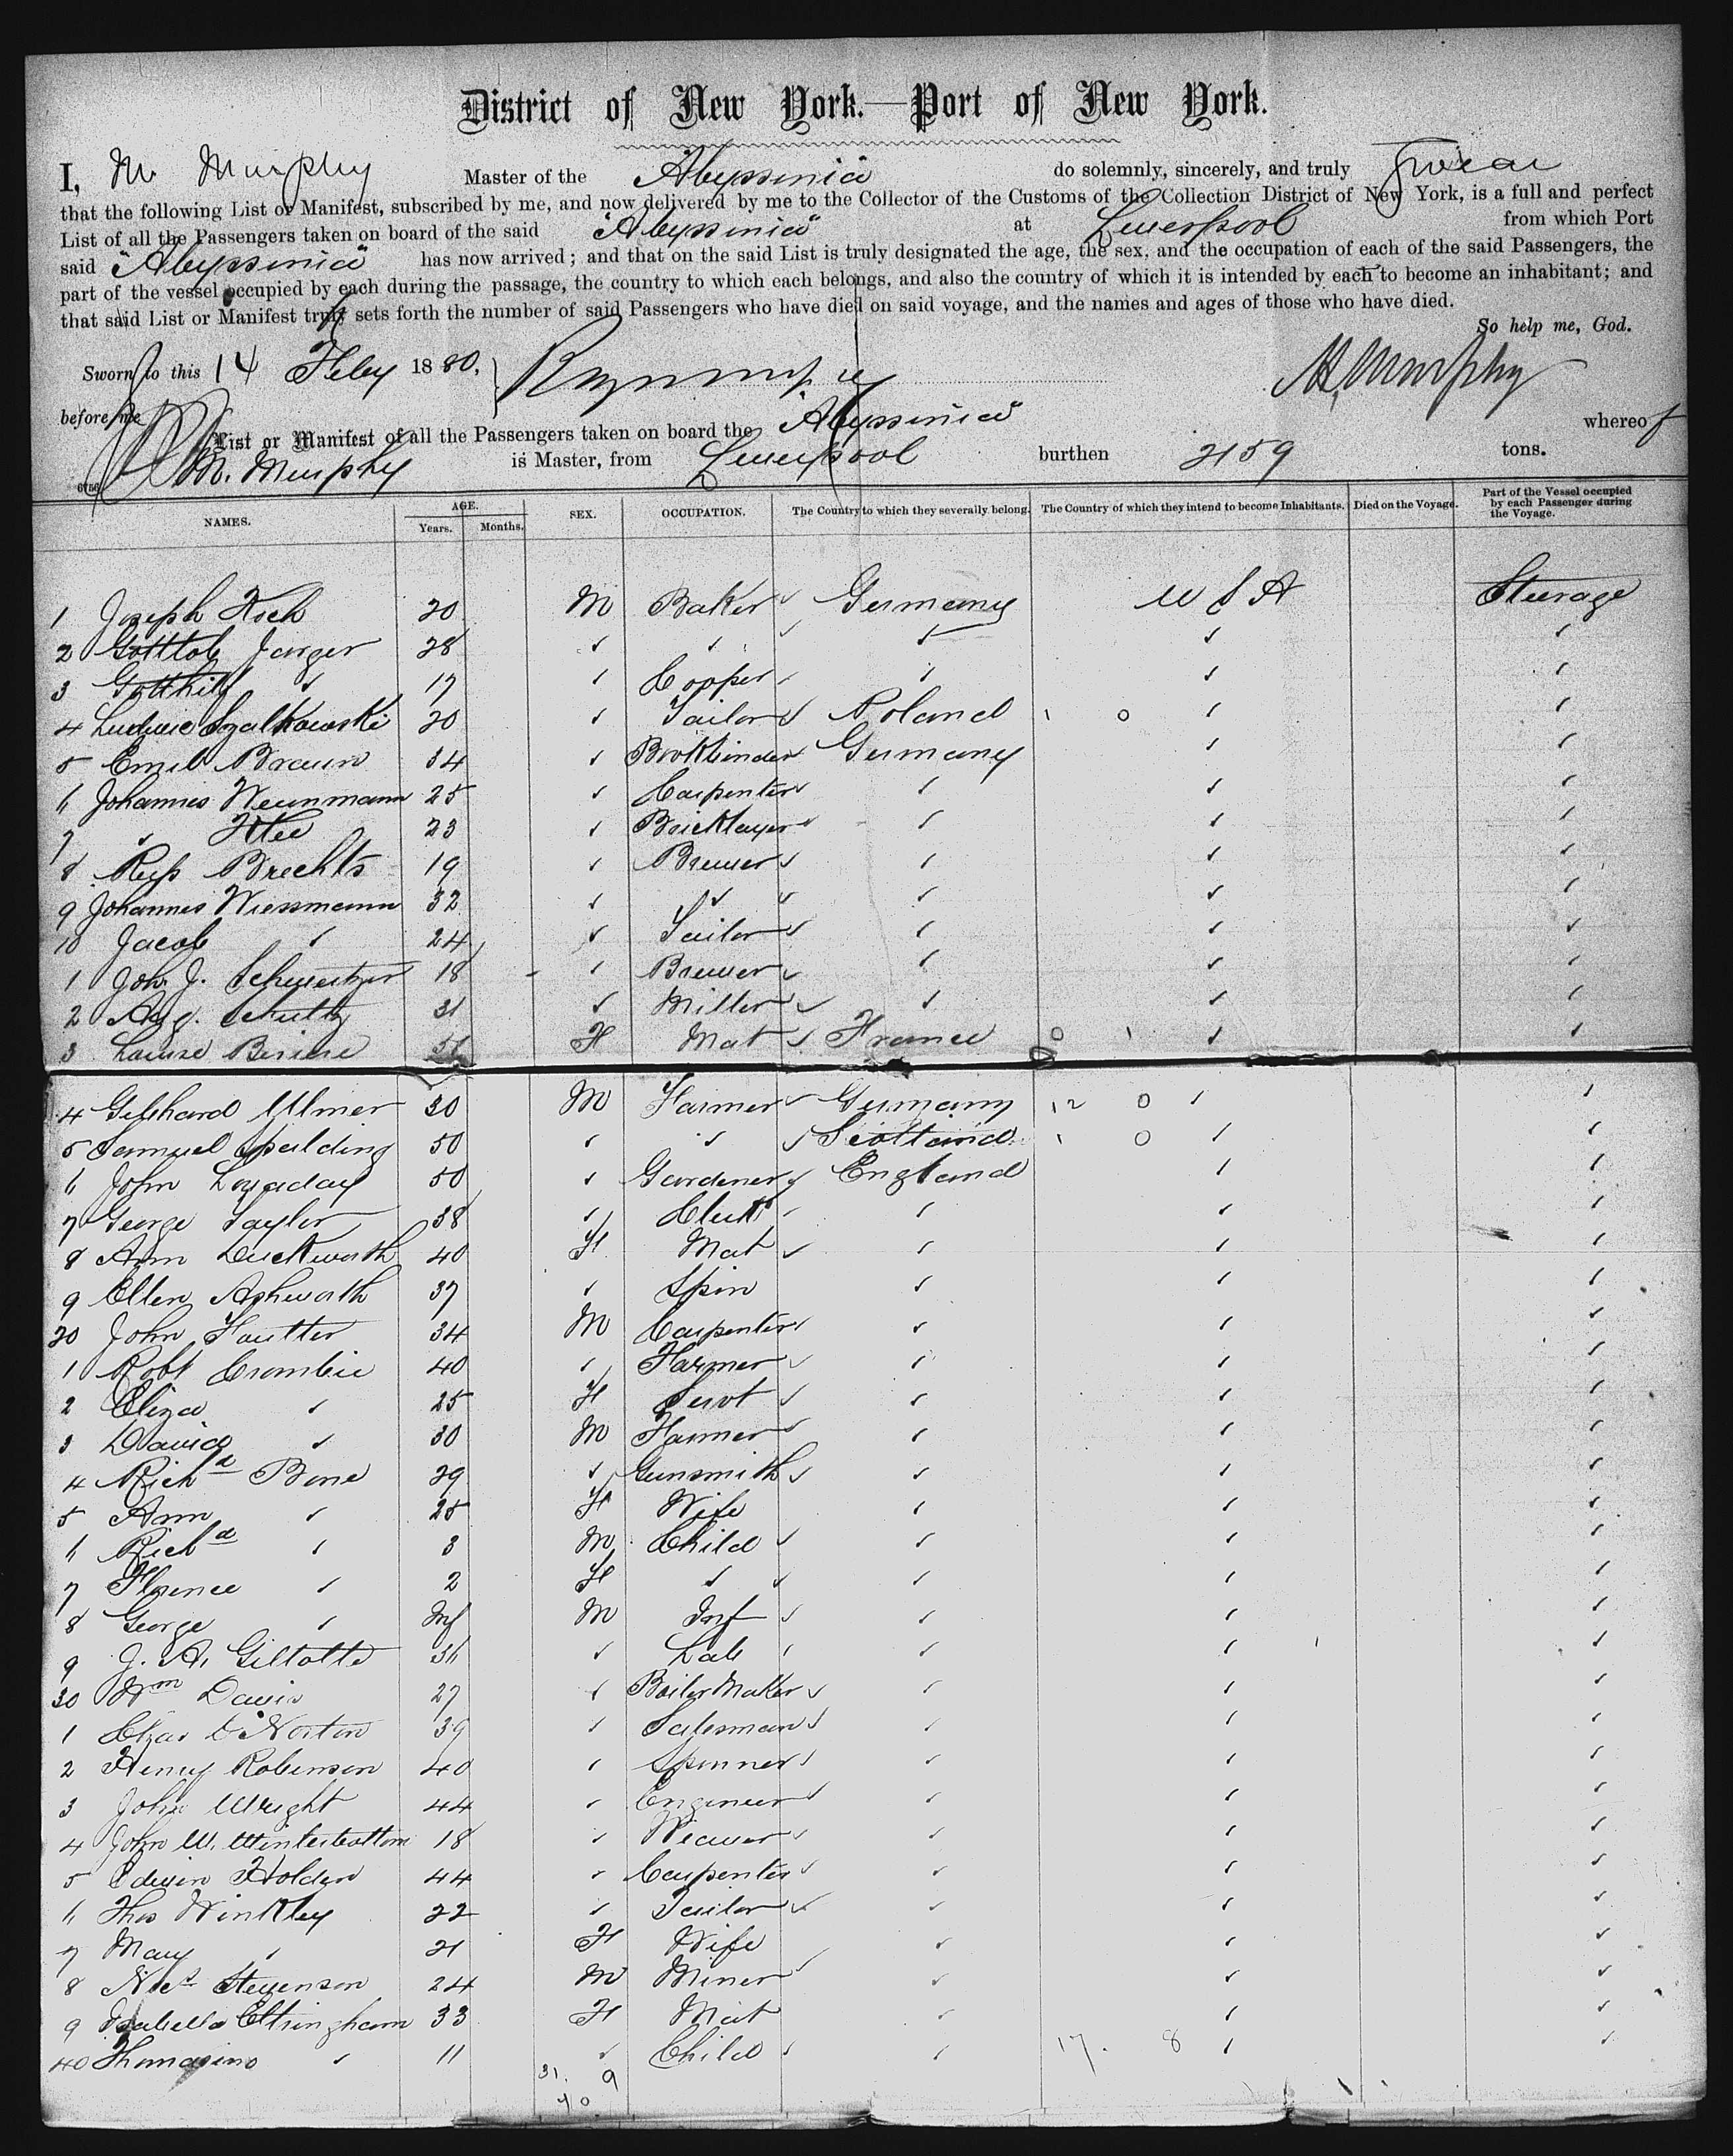 District of New York.—Port of New York.
I, M Murphy Master of the Abyssinia do solemnly, sincerely, and truly swear
that the following List or Manifest, subscribed by me, and now delivered by me to the Collector of the Customs of the Collection District of New York, is a full and perfect
List of all the Passengers taken on board of the said "Abyssinia" at Liverpool from which Port
said "Abyssinia" has now arrived; and that on the said List is truly designated the age, the sex, and the occupation of each of the said Passengers, the
part of the vessel occupied by each during the passage, the country to which each belongs, and also the country of which it is intended by each to become an inhabitant; and
that said List or Manifest truly sets forth the number of said Passengers who have died on said voyage, and the names and ages of those who have died.
So help me, God.
Sworn to this 14 Feby 1880, M Murphy
before me
List or Manifest of all the Passengers taken on board the "Abyssinia" whereof
M. Murphy is Master, from Liverpool burthen 2159 tons.
6756
NAMES. AGE. Years. Months. SEX. OCCUPATION. The Country to which they severally belong. The Country of which they intend to become Inhabitants. Died on the Voyage. Part of the Vessel occupied by each Passenger during the Voyage.
1 Joseph Koch 20 M Baker Germany U S A Steerage
2 Gottlob Jarger 28 ✓ ✓ ✓ ✓ ✓
3 Gotthilf ✓ 17 ✓ Copper ✓ ✓ ✓
4 Ludwic Szalkowski 20 ✓ Tailor Poland 1 0 ✓ ✓
5 Emil Braun 34 ✓ Bookbinder Germany ✓ ✓
6 Johannes Weinmann 25 ✓ Carpenter ✓ ✓ ✓
7 ✓ Klee 23 ✓ Bricklayer ✓ ✓ ✓
8 Brechts 19 ✓ Brewer ✓ ✓ ✓
9 Johannes Wiessmann 32 ✓ ✓ ✓ ✓ ✓
10 Jacob ✓ 24 ✓ Tailor ✓ ✓ ✓
1 Joh. J. Schweitzer 18 ✓ Brewer ✓ ✓ ✓
2 Aug. 31 ✓ Miller ✓ ✓ ✓
3 Louise 51 F Mat France 0 1 ✓ ✓
4 Gebhard Ulmer 30 M Farmer Germany 12 0 ✓ ✓
5 Samuel Spalding 50 ✓ ✓ Scotland 1 0 ✓ ✓
6 John Loveday 50 ✓ Gardener England ✓ ✓
7 George Taylor 38 ✓ Clerk ✓ ✓ ✓
8 Ann Duckworth 40 F Mat ✓ ✓ ✓
9 Ellen Ashworth 37 ✓ Spin ✓ ✓ ✓
20 John 34 M Carpenter ✓ ✓ ✓
1 Robt Crombie 40 ✓ Farmer ✓ ✓ ✓
2 Eliza ✓ 25 F Servt ✓ ✓ ✓
3 David ✓ 30 M Farmer ✓ ✓ ✓
4 Richd Bone 29 ✓ Gunsmith ✓ ✓ ✓
5 Ann ✓ 25 F Wife ✓ ✓ ✓
6 Richd ✓ 3 M Child ✓ ✓ ✓
7 Florence ✓ 2 F ✓ ✓ ✓ ✓
8 George ✓ Inf M Inf ✓ ✓ ✓
9 J. A. 36 ✓ Lab ✓ ✓ ✓
30 Wm Davis 27 ✓ Boiler Maker ✓ ✓ ✓
1 Chas D Norton 39 ✓ Salesman ✓ ✓ ✓
2 Henry Robinson 40 ✓ Spinner ✓ ✓ ✓
3 John Wright 44 ✓ Engineer ✓ ✓ ✓
4 John W. Winterbottom 18 ✓ Weaver ✓ ✓ ✓
5 Edwin Holden 44 ✓ Carpenter ✓ ✓ ✓
6 Thos Winkley 22 ✓ Tailor ✓ ✓ ✓
7 Mary ✓ 21 F Wife ✓ ✓ ✓
8 Stevenson 24 M Miner ✓ ✓ ✓
9 Isabella Eltringham 33 F Mat ✓ ✓ ✓
40 Thomasino ✓ 11 ✓ Child ✓ 17. 8 ✓ ✓
31. 9
40